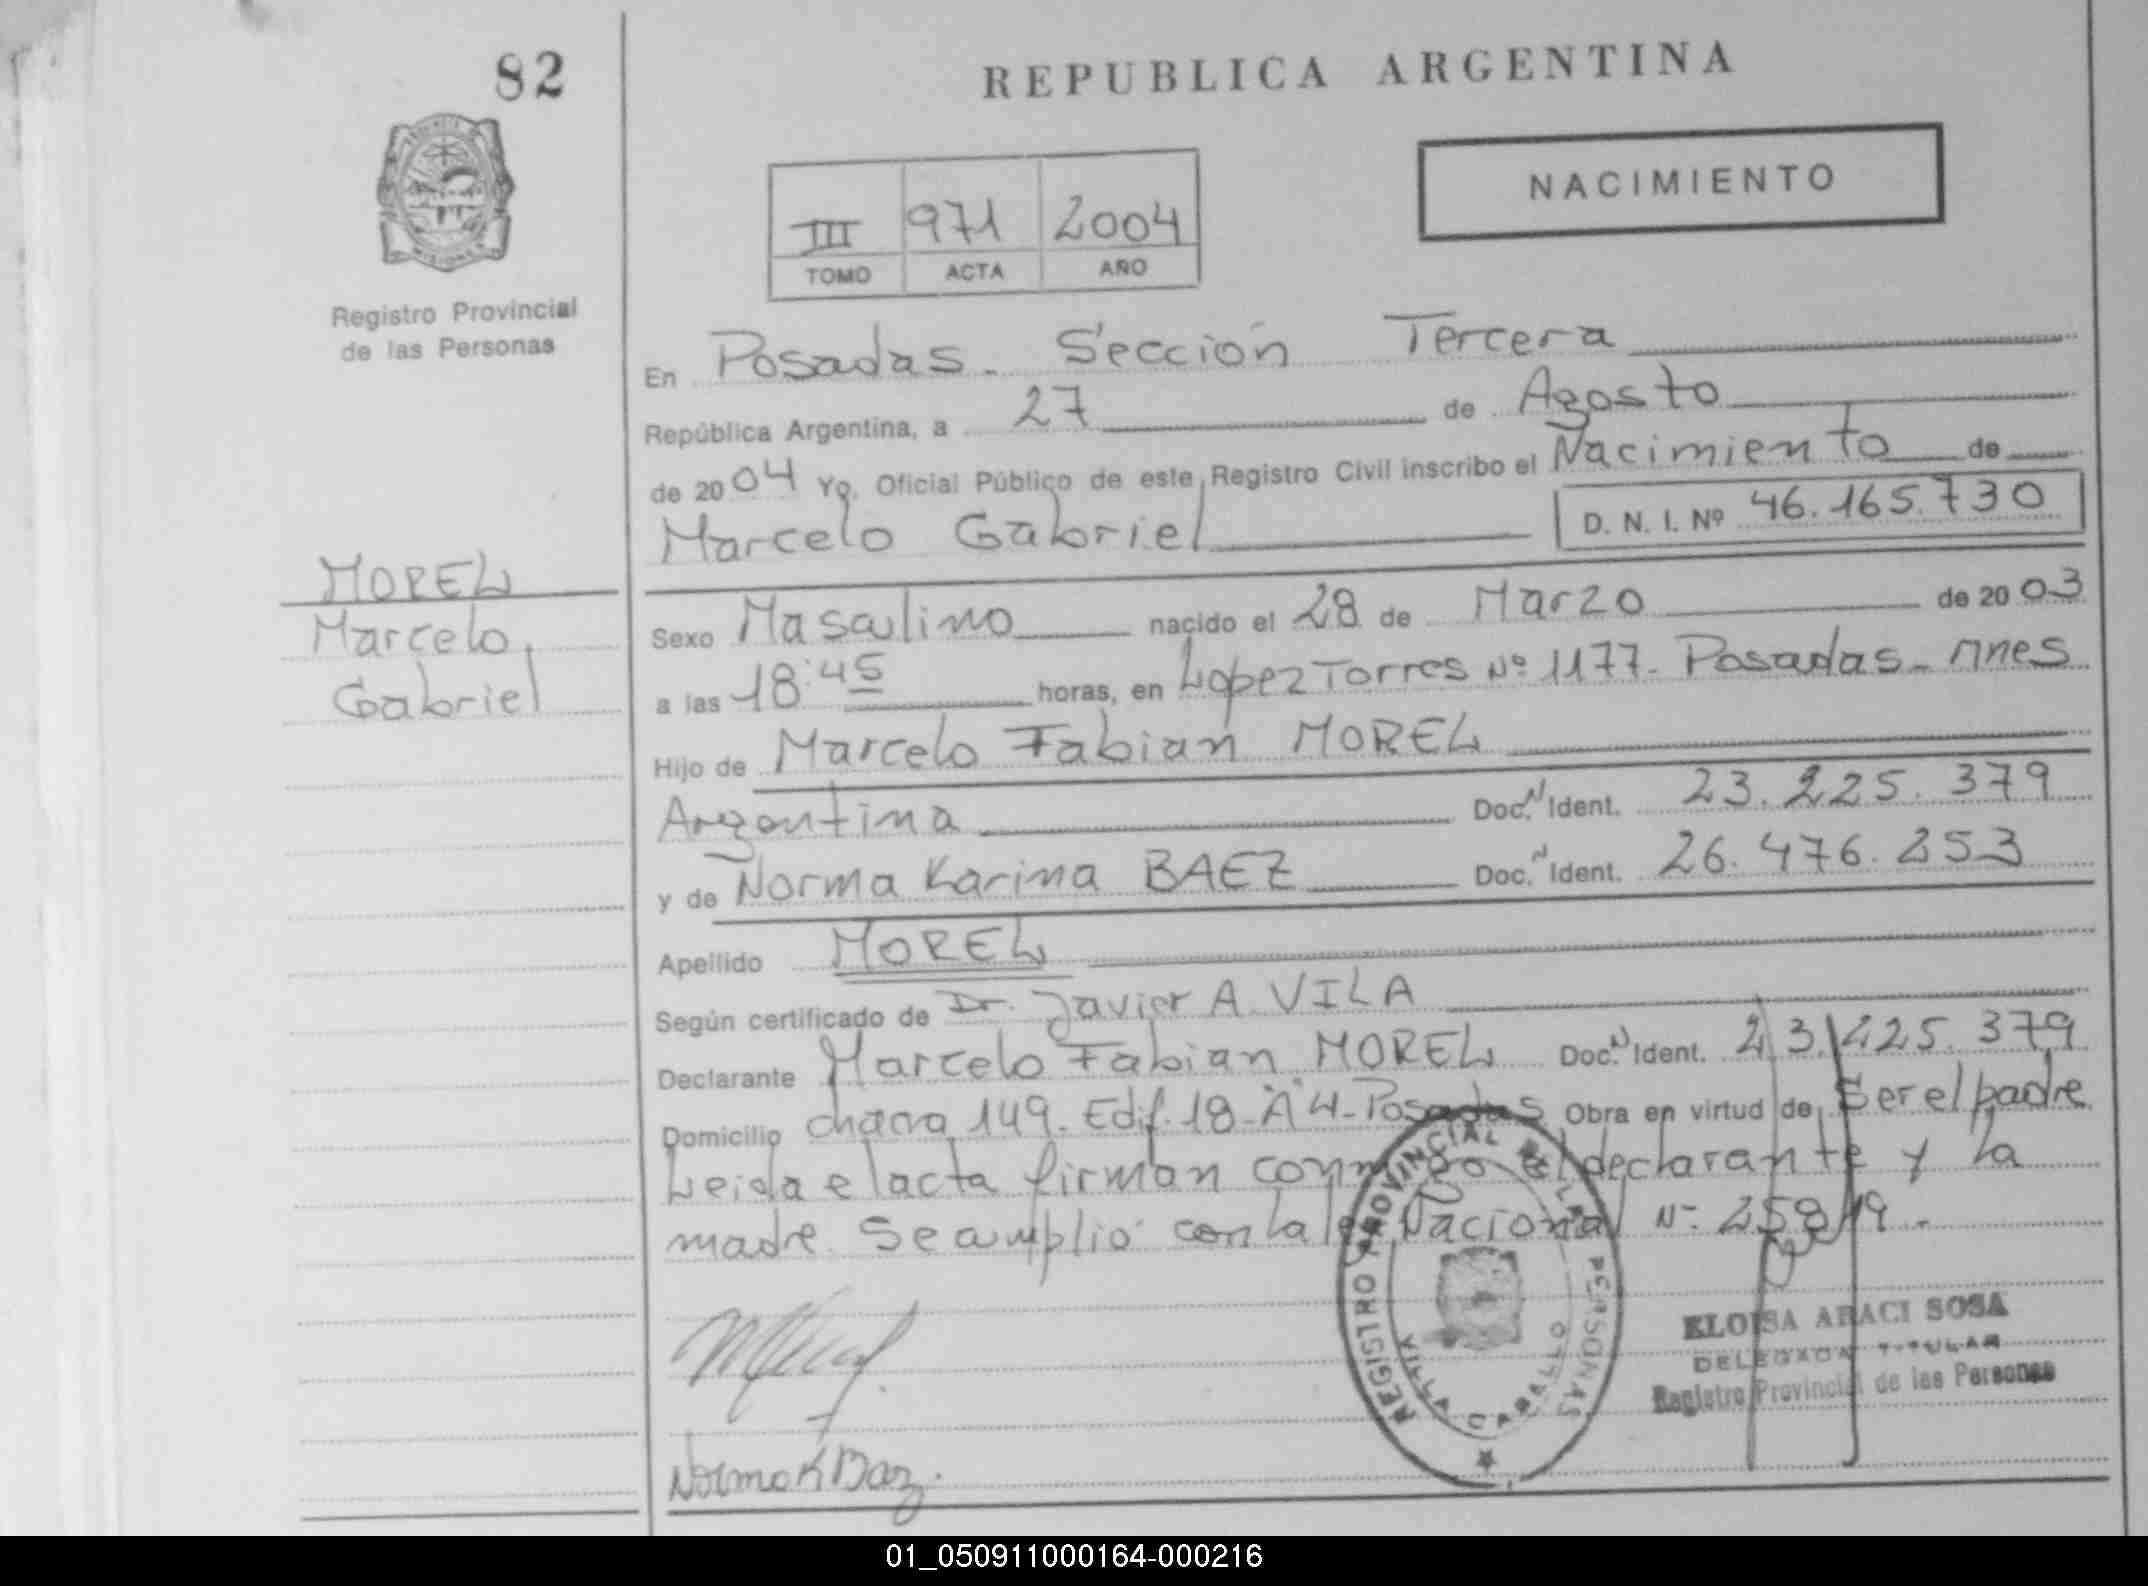 82
REPUBLICA ARGENTINA
NACIMIENTO
III 971 2004
TOMO ACTA AÑO
Registro Provincial
de las Personas
En Posadas - Sección Tercera
República Argentina, a 27 de Agosto
de 2004 Yo, Oficial Público de este Registro Civil inscribo el Nacimiento de
Marcelo Gabriel D. N. I. Nº 46.165.730
MOREL
Marcelo
Gabriel
Sexo Masculino nacido el 28 de Marzo de 2003
a las 18:45 horas, en Lopez Torres Nº 1177 - Posadas - Mnes
Hijo de Marcelo Fabian MOREL
Argentina Doc. N Ident. 23.225.379
y de Norma Karina BAEZ Doc. N Ident. 26.476.253
Apellido MOREL
Según certificado de Dr. Javier A. VILA
Declarante Marcelo Fabian MOREL Doc. N Ident. 23.225.379
Domicilio chacra 149 - Edif. 18 - A 4 - Posadas Obra en virtud de Ser el padre
Leida el acta firman conmigo el declarante y la
madre. Se amplió con la ley Nacional Nº 25819.
REGISTRO PROVINCIAL DE LAS PERSONAS
VILLA CABELLO
ELOISA ARACI SOSA
DELEGADA TITULAR
Registro Provincial de las Personas
Norma K Baez.
01_050911000164-000216